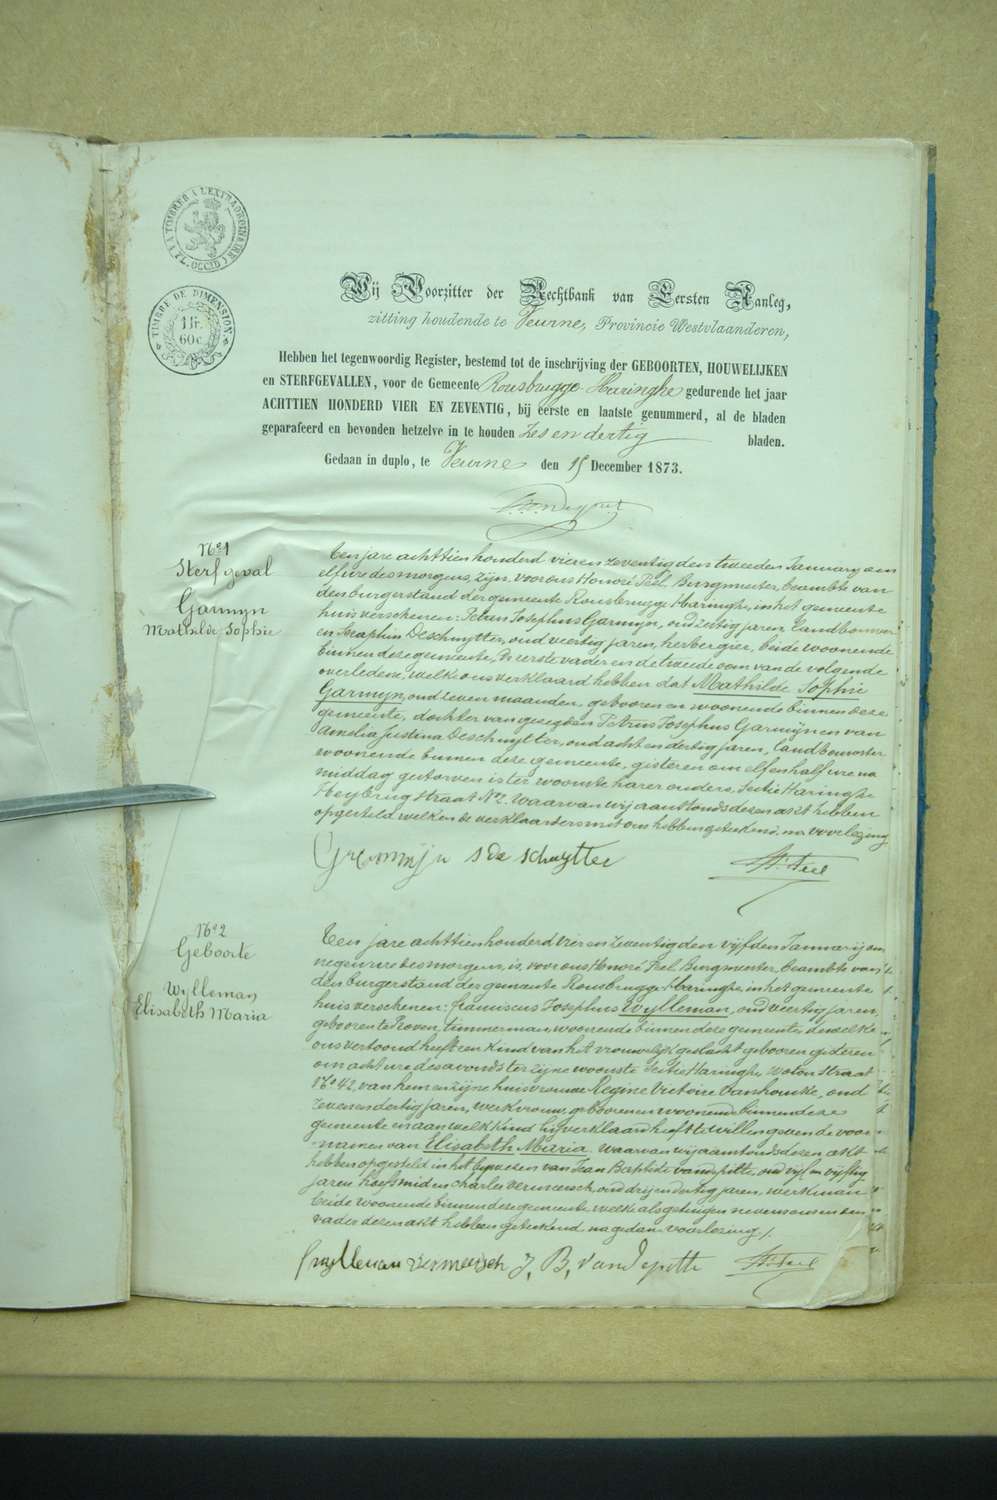 TIMBRES A L'EXTRAORDINAIRE
FL. OCCID
TIMBRE DE DIMENSION
1 fr.
60 c.
Wij Voorzitter der Rechtbank van Eersten Aanleg,
zitting houdende te Veurne, Provincie Westvlaanderen,
Hebben het tegenwoordig Register, bestemd tot de inschrijving der GEBOORTEN, HOUWELIJKEN
en STERFGEVALLEN, voor de Gemeente Rousbrugge-Haringhe gedurende het jaar
ACHTTIEN HONDERD VIER EN ZEVENTIG, bij eerste en laatste genummerd, al de bladen
geparafeerd en bevonden hetzelve in te houden Zes en dertig bladen.
Gedaan in duplo, te Veurne den 15 December 1873.
No 1
Sterfgeval
Garmyn
Mathilde Sophie
Ten jare achttien honderd vier en zeventig den tweeden January om
elf ure des morgens, zijn, voor ons Honoré Feel, Burgmeester, beambte van
den burgerstand der gemeente Rousbrugge Haringhe, in het gemeente
huis verschenen: Petrus Josephus Garmyn, oud zestig jaren, landbouwer
en Seraphin Deschuytter, oud veertig jaren, herbergier, beide woonende
binnen deze gemeente, de eerste vader en de tweede oom van de volgende
overledene, welke ons verklaard hebben dat Mathilde Sophie
Garmyn, oud zeven maanden, gebooren en woonende binnen deze
gemeente, dochter van gezegden Petrus Josephus Garmyn en van
Amelia Justina Deschuytter, oud acht en dertig jaren, landbouwster
woonende binnen deze gemeente, gisteren om elf en half ure na
middag gestorven is ter woonste harer ouders, Sectie Haringhe
Heybrug straat No 2. Waarvan wij aanstonds dezen act hebben
opgesteld welken de verklaarders met ons hebben geteekend, na voorlezing
Garmijn s de schuytter Hre Feel
No 2
Geboorte
Wylleman
Elisabeth Maria
Ten jare achttien honderd vier en zeventig den vijfden January om
negen ure des morgens, is, voor ons Honoré Feel, Burgmeester, beambte van
den burgerstand der gemeente Rousbrugge Haringhe, in het gemeente
huis verschenen: Franciscus Josephus Wylleman, oud veertig jaren,
gebooren te Proven, timmerman, woonende binnen deze gemeente, dewelke
ons vertoond heeft een kind van het vrouwelijk geslacht gebooren gisteren
om acht ure des avonds ter zijne woonste Sectie Haringhe, Woton straat
No 42, van hem en zijne huisvrouw Regine Victoire Vanhoucke, oud
zeven en dertig jaren, werkvrouw, gebooren en woonende binnen deze
gemeente en aan welk kind hij verklaard heeft te willen geven de voor-
namen van Elisabeth Maria. Waarvan wij aanstonds dezen akt
hebben opgesteld in het bijwezen van Jean Baptiste Vandepitte, oud vijf en vijftig
jaren hoefsmid en Charles Vermeersch, oud drij en dertig jaren, werkman
beide woonende binnen deze gemeente, welke als getuigen nevens ons en den
vader dezen akt hebben geteekend na gedane voorlezing /.
Wylleman vermeersch J, B, Vandepitte Hre Feel